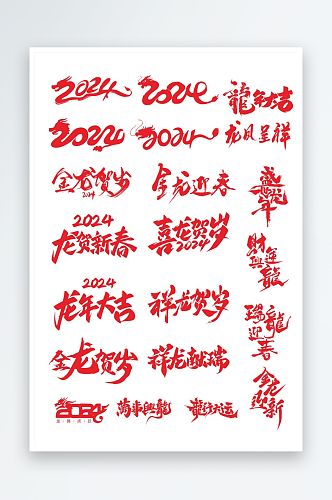 2024
2024
龍年大吉
2024
2024
龙凤呈祥
金龙贺岁
2024
金龙迎春
盛世龙年
2024
龙贺新春
喜龙贺岁
2024
財運興龍
2024
龙年大吉
祥龙贺岁
瑞龍迎春
金龙贺岁
祥龙献瑞
金龙迎新
2024
萬事興龍
龍行大运